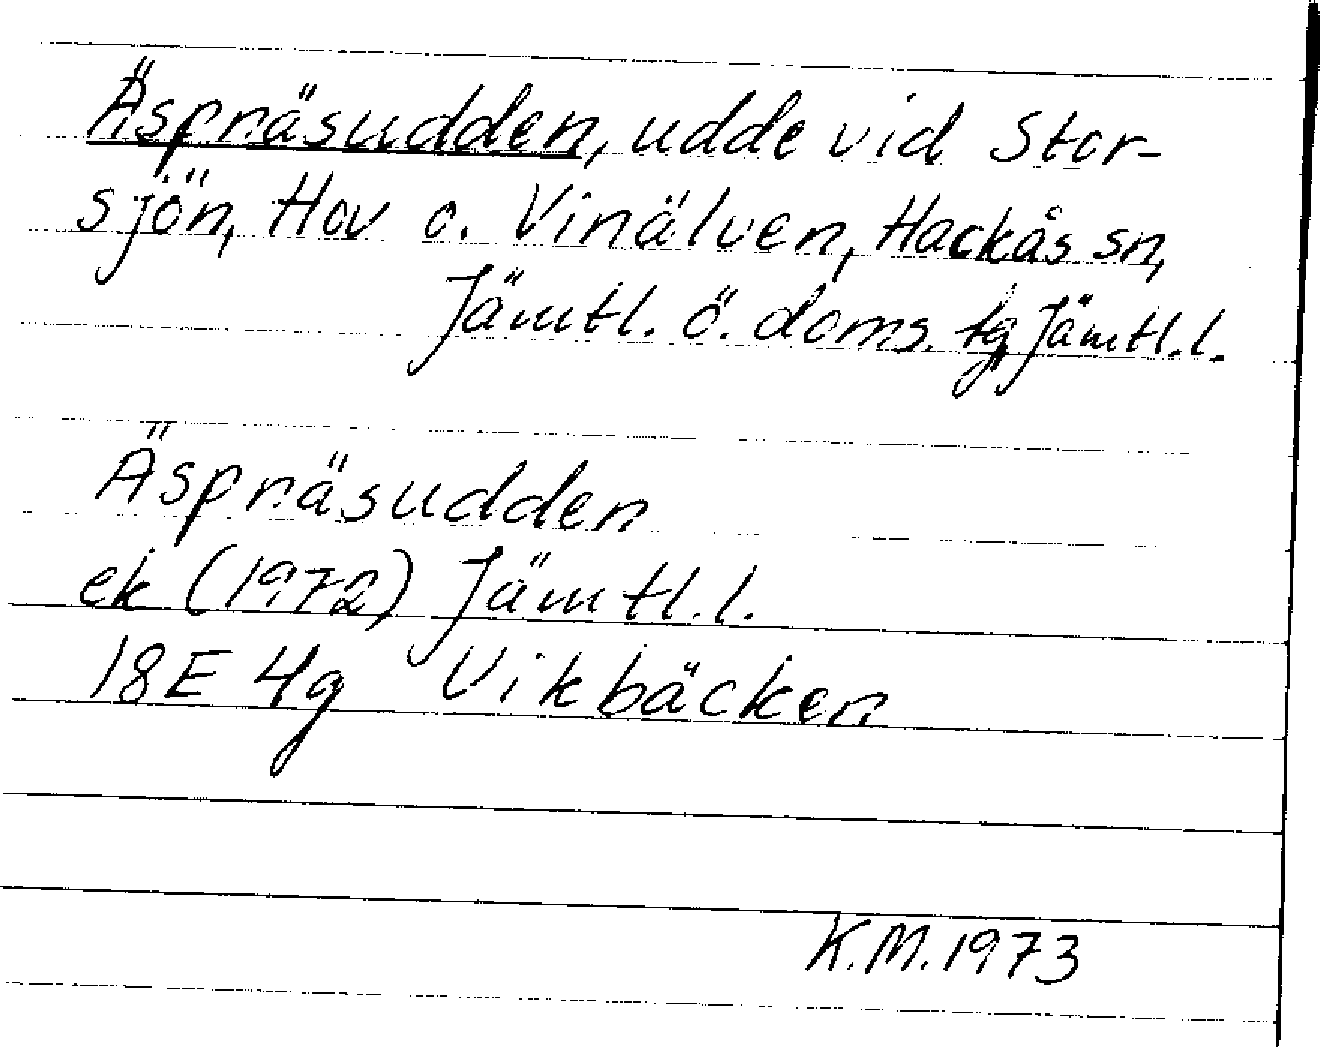 Äspnäsudden, udde vid Stor-
sjön, Hov o. Vinälven, Hackås sn,
Jämtl. ö. doms. tg Jämtl.l.
Äspnäsudden
ek (1972) Jämtl.l.
18E 4g Vikbäcken
K.M.1973